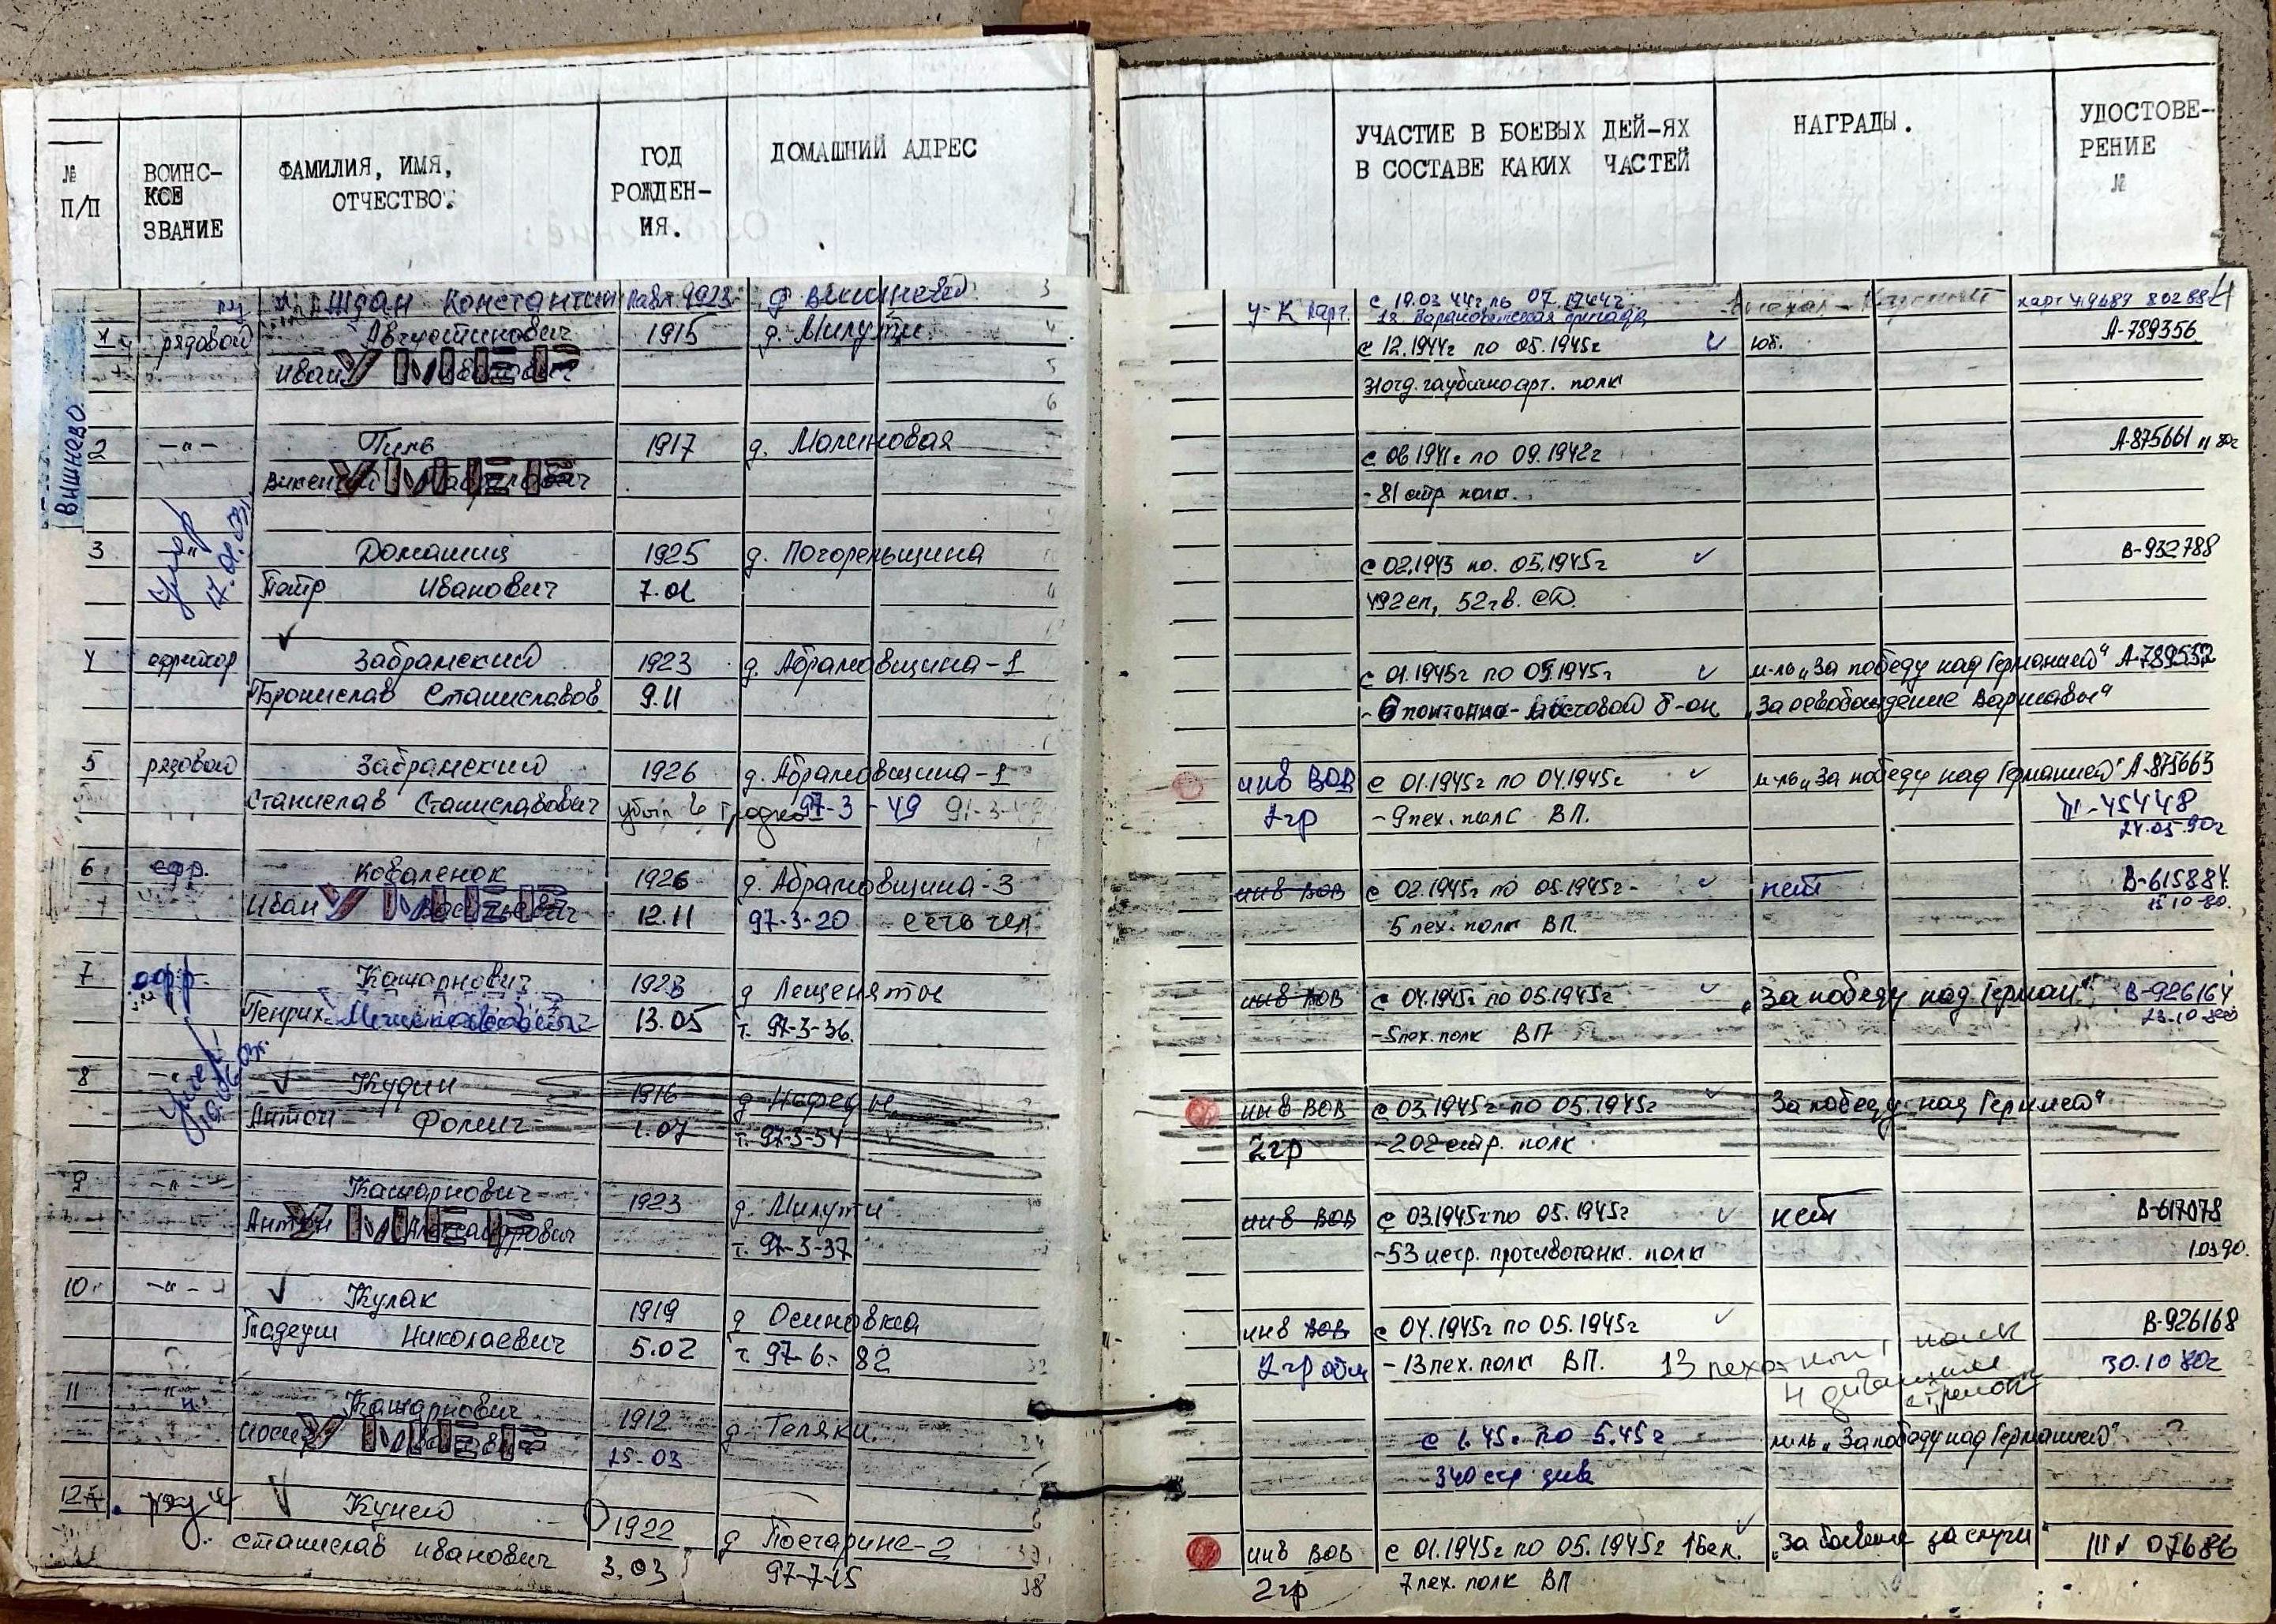 № П/П
ВОИНСКОЕ ЗВАНИЕ
ФАМИЛИЯ, ИМЯ, ОТЧЕСТВО.
ГОД РОЖДЕНИЯ.
ДОМАШНИЙ АДРЕС
УЧАСТИЕ В БОЕВЫХ ДЕЙ-ЯХ В СОСТАВЕ КАКИХ ЧАСТЕЙ
НАГРАДЫ.
УДОСТОВЕРЕНИЕ №
Вишнево
Ждан Константин 1923 д Вишнево 3 у-к парт. с 19.03 44г по 07.1944г
рядовой Августинович 1915 д. Милути 4 с 12.1944г по 05.1945г юб. А-789356
Иван УМЕР 5 31 отд. гаубично арт. полк
6
2 -"- Пиль 1917 д. Малиновая с 06.1941г по 09.1942г А-875661
Викентий УМЕР - 81 стр полк.
Умер 17.01.03
3 " Домашиц 1925 д. Погорельщина с 02.1943 по. 05.1945г В-932788
Петр Иванович 7.01 492 сп, 52 гв. СД.
4 ефрейтор Забрамский 1923 д. Абрамовщина-1 с 01.1945г по 05.1945г м-ль „За победу над Германией" А-789532
Бронислав Станиславов. 9.11 - 6 понтонно-мостовой б-он „За освобождение Варшавы"
5 рядовой Забрамский 1926 д. Абрамовщина-1 инв ВОВ с 01.1945г по 04.1945г м-ль „За победу над Германией" А-875663
Станислав Станиславович убыл в Гродно 97-3-49 2гр - 9 пех. полк ВП. 45448
24.05.90г
6 ефр. Коваленок 1926 д. Абрамовщина-3 инв ВОВ с 02.1945г по 05.1945г- нет В-615884
Иван УМЕР Васильевич 12.11 97-3-20 есть тел 5 пех. полк ВП. 15 10-80.
7 ефр. Кашарнович 1923 д Лещенятов инв ВОВ с 04.1945г по 05.1945г „За победу над Герман" В-926164
Генрих 13.05 т. 97-3-36. - 5 пех. полк ВП 23.10
8 -" Кудин 1916 д инв ВОВ с 03.1945г по 05.1945г За победу над Германией"
Антон Фомич 1.07 т. 97-3-54 2гр - 202 стр. полк
9 -"- Кашарнович 1923 д. Милути инв ВОВ с 03.1945г по 05.1945г нет В-617078
Антон УМЕР Александрович т. 97-3-37 - 53 истр. противотанк. полк 1.03 90.
10 -"- Кулак 1919 д Осиновка инв ВОВ с 04.1945г по 05.1945г В-926168
Тадеуш Николаевич 5.02 т. 97-6-82 2гр - 13 пех. полк ВП. 13 пехотный полк 30.10 80г
4 дивизии
11 -"- Кашарнович 1912 д. Теляки. с 1.45г. по 5.45г м-ль „За победу над Германией" ?
УМЕР 25.03 340 стр див
12 ряд Кунец 1922 д Постарине-2 инв ВОВ с 01.1945г по 05.1945г „За боевые заслуги" 07686
Станислав Иванович 3.03 97-7-15 2гр 7 пех. полк ВП
38